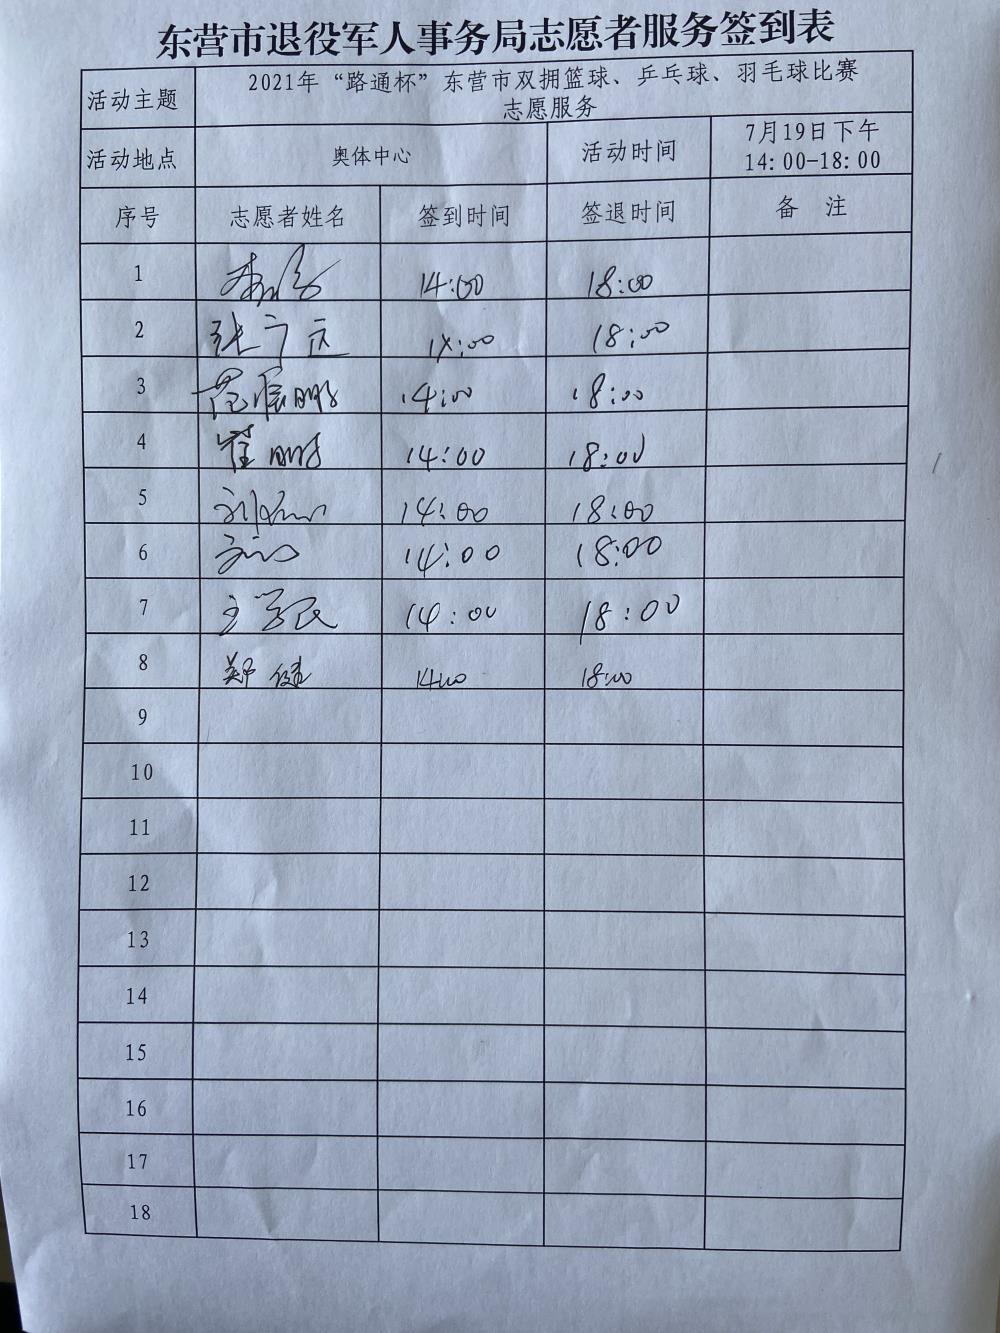 东营市退役军人事务局志愿者服务签到表
活动主题 2021年“路通杯”东营市双拥篮球、乒乓球、羽毛球比赛
志愿服务
活动地点 奥体中心 活动时间 7月19日下午
14:00-18:00
序号 志愿者姓名 签到时间 签退时间 备 注
1 14:00 18:00
2 张宁远 14:00 18:00
3 范展鹏 14:00 18:00
4 崔鹏 14:00 18:00
5 14:00 18:00
6 14:00 18:00
7 王学民 14:00 18:00
8 郑健 14:00 18:00
9
10
11
12
13
14
15
16
17
18